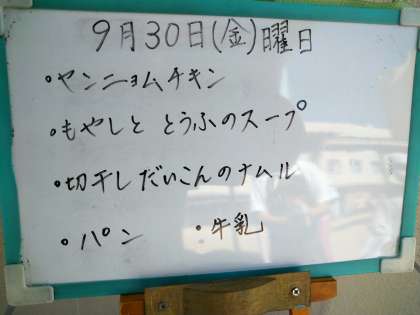 9月30日(金)曜日
•ヤンニョムチキン
•もやしと とうふのスープ
•切干しだいこんのナムル
•パン •牛乳